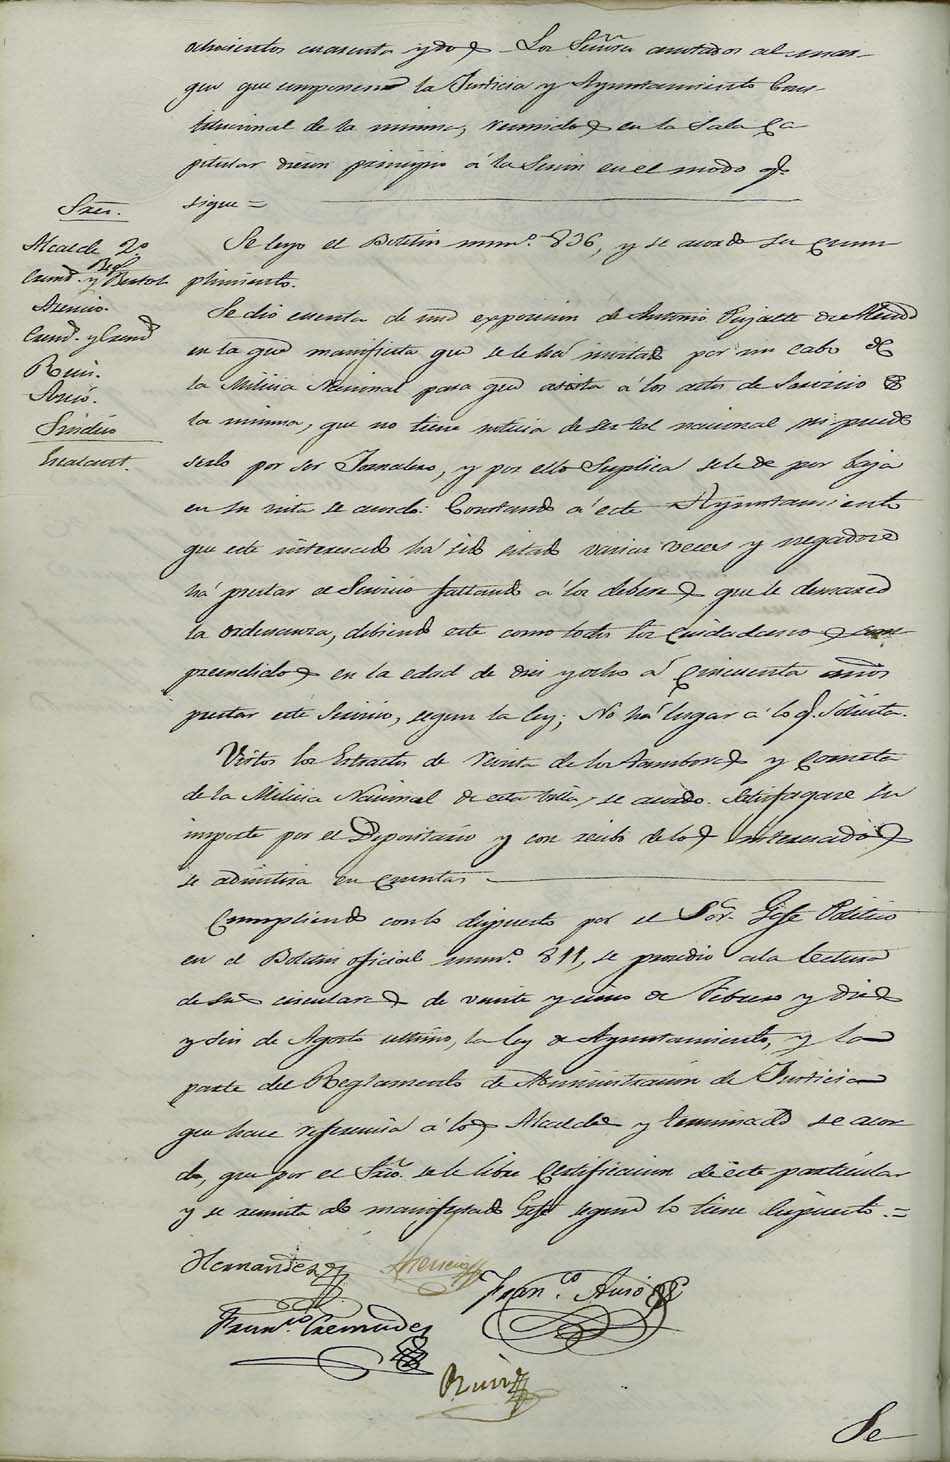 ochocientos cuarenta y dos Los Señores anotados al mar-
gen que componen la Justicia y Ayuntamiento Cons-
titucional de la misma, reunidos en la Sala Ca
pitular dieron principio á la Sesion en el modo q.e
sigue =
Sres.
Alcalde 2º
Regs.
Crem.s y
Asencio.
Crem.s y Crem.s
Ruiz.
Sindico
Escalant.
Se leyo el Boletin num.º 836, y se acordo su cum
plimiento.
Se dio cuenta de una exposicion de Antonio Pujalte de
en la que manifiesta que se le ha invitado por un cabo de
la Milicia Nacional para que asista á los actos de Servicio de
la misma, que no tiene noticia de ser tal nacional ni puede
serlo por ser Jornalero, y por ello Suplica se le de por baja
en su vista se acordo: Constando á este Ayuntamiento
que este interesado há sido citado varias veces y negadose
há prestar el Servicio faltando á los deberes que le demarca
la ordenanza, debiendo este como todos los Ciudadanos com-
preendidos en la edad de diez y ocho á Cincuenta años
prestar este Servicio, segun la ley; No há lugar á lo q.e Solicita.
Vistos los Extractos de revista de los tambores y Corneta
de la Milicia Nacional de esta Villa, se acordo. Satisfagase su
importe por el Depositario y con recibo de los interesados
se admitira en Cuentas
Cumpliendo con lo dispuesto por el Sor. Gefe Politico
en el Boletin oficial num.º 811, se procedio a la lectura
de sus circulares de veinte y cinco de Febrero y diez
y seis de Agosto ultimo, la ley de Ayuntamientos, y la
parte del Reglamento de Administracion de Justicia
que hace referencia á los Alcaldes y terminado se acor
do, que por el Srio. se le libre Certificacion de este particular
y se remita a dho manifestado Gefe segun lo tiene dispuesto. =
Hernandez Asencio
Fran.co Asnio
Fran.co Cremades
Ruiz
Se